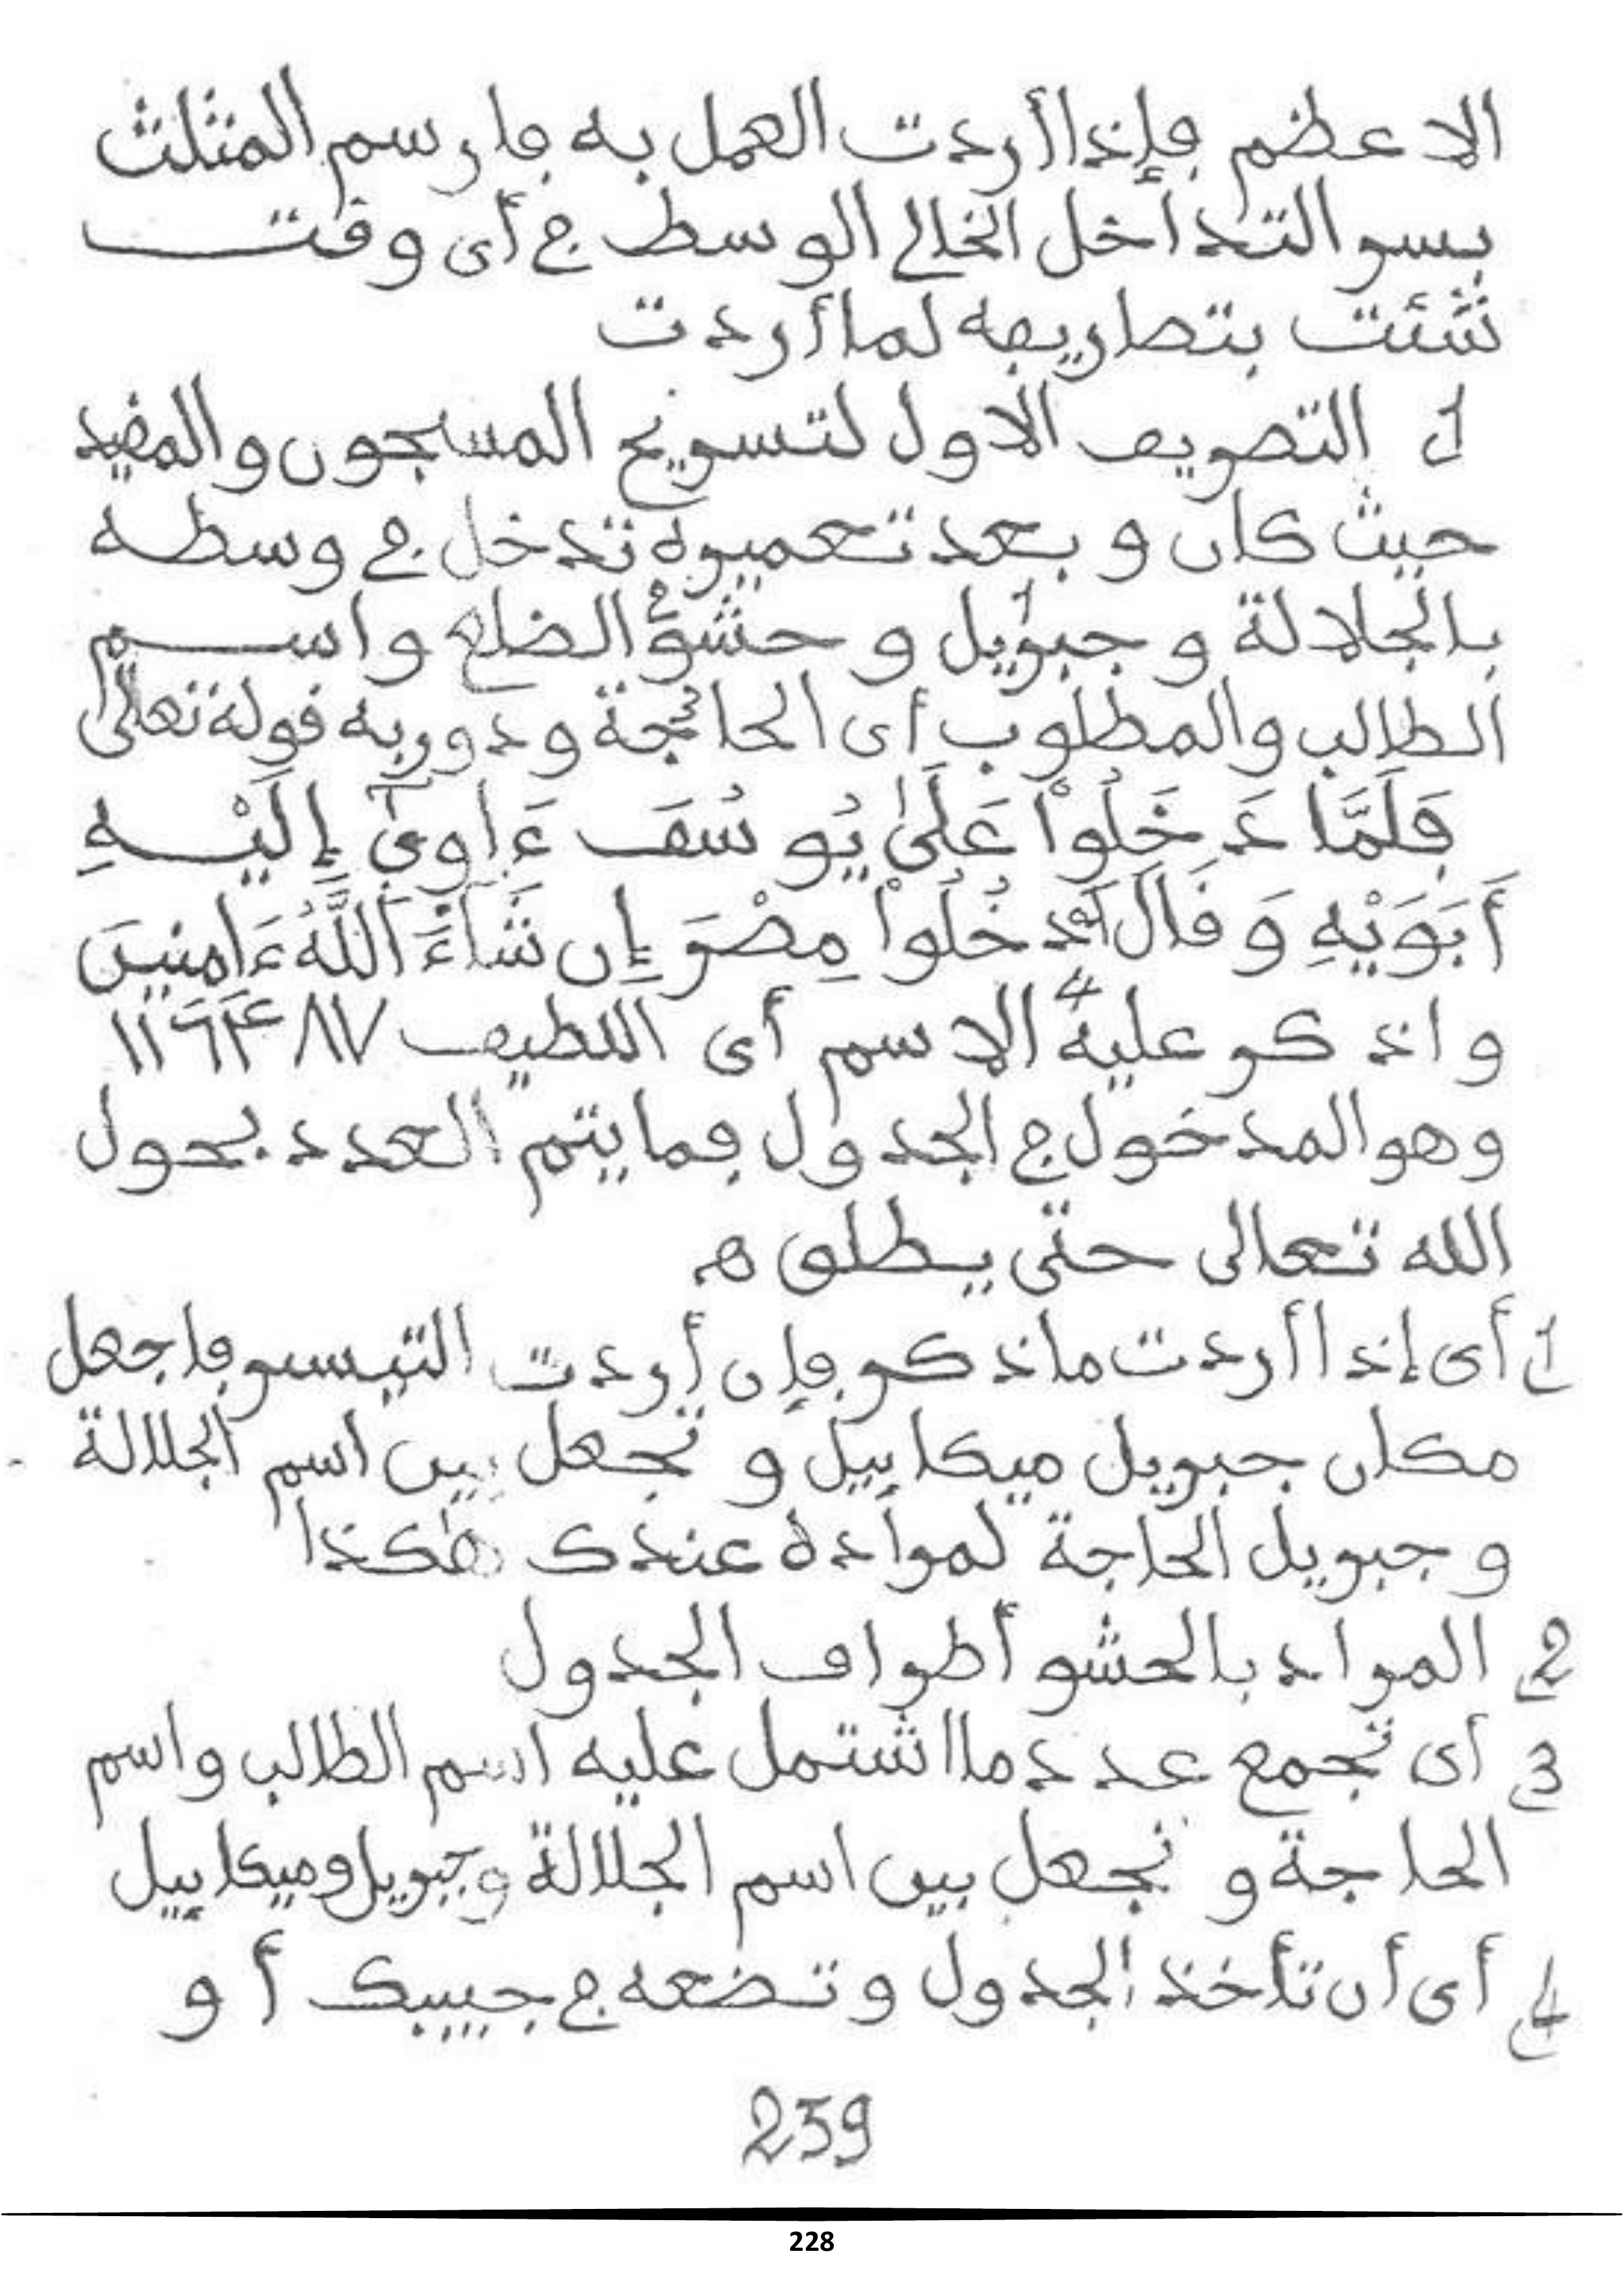 الاعظم فإذا أردت العمل به فارسم المثلث
بسر التداخل الخالي الوسط في أي وقت
شئت بتصاريفه لما أردت
1 التصريف الاول لتسريح المسجون والمقيد
حيث كان وبعد تعميره تدخل في وسطه
بالجلالة وجبريل1 وحشو2 الضلع واسم
الطالب والمطلوب أي الحاجة3 ودور به قوله تعالى
فَلَمَّا دَخَلُواْ عَلَىٰ يُوسُفَ ءَاوِىٰٓ إِلَيْهِ
أَبَوَيْهِ وَقَالَ اَدْخُلُواْ مِصْرَ إِن شَآءَ اَللَّهُ ءَامِنِينَ
واذكر عليه4 الاسم أي اللطيف
وهو المدخول في الجدول فما يتم العدد بحول
الله تعالى حتى يطلق ه
1 أي إذا أردت ما ذكر فإن أردت التيسير فاجعل
مكان جبريل ميكاييل وتجعل بين اسم الجلالة
وجبريل الحاجة لمرادة عندك هكذا
2 المراد بالحشو أطراف الجدول
3 أي تجمع عدد ما اشتمل عليه اسم الطالب واسم
الحاجة وتجعل بين اسم الجلالة وجبريل وميكاييل
4 أي أن تأخذ الجدول وتضعه في جيبك أو
239
228